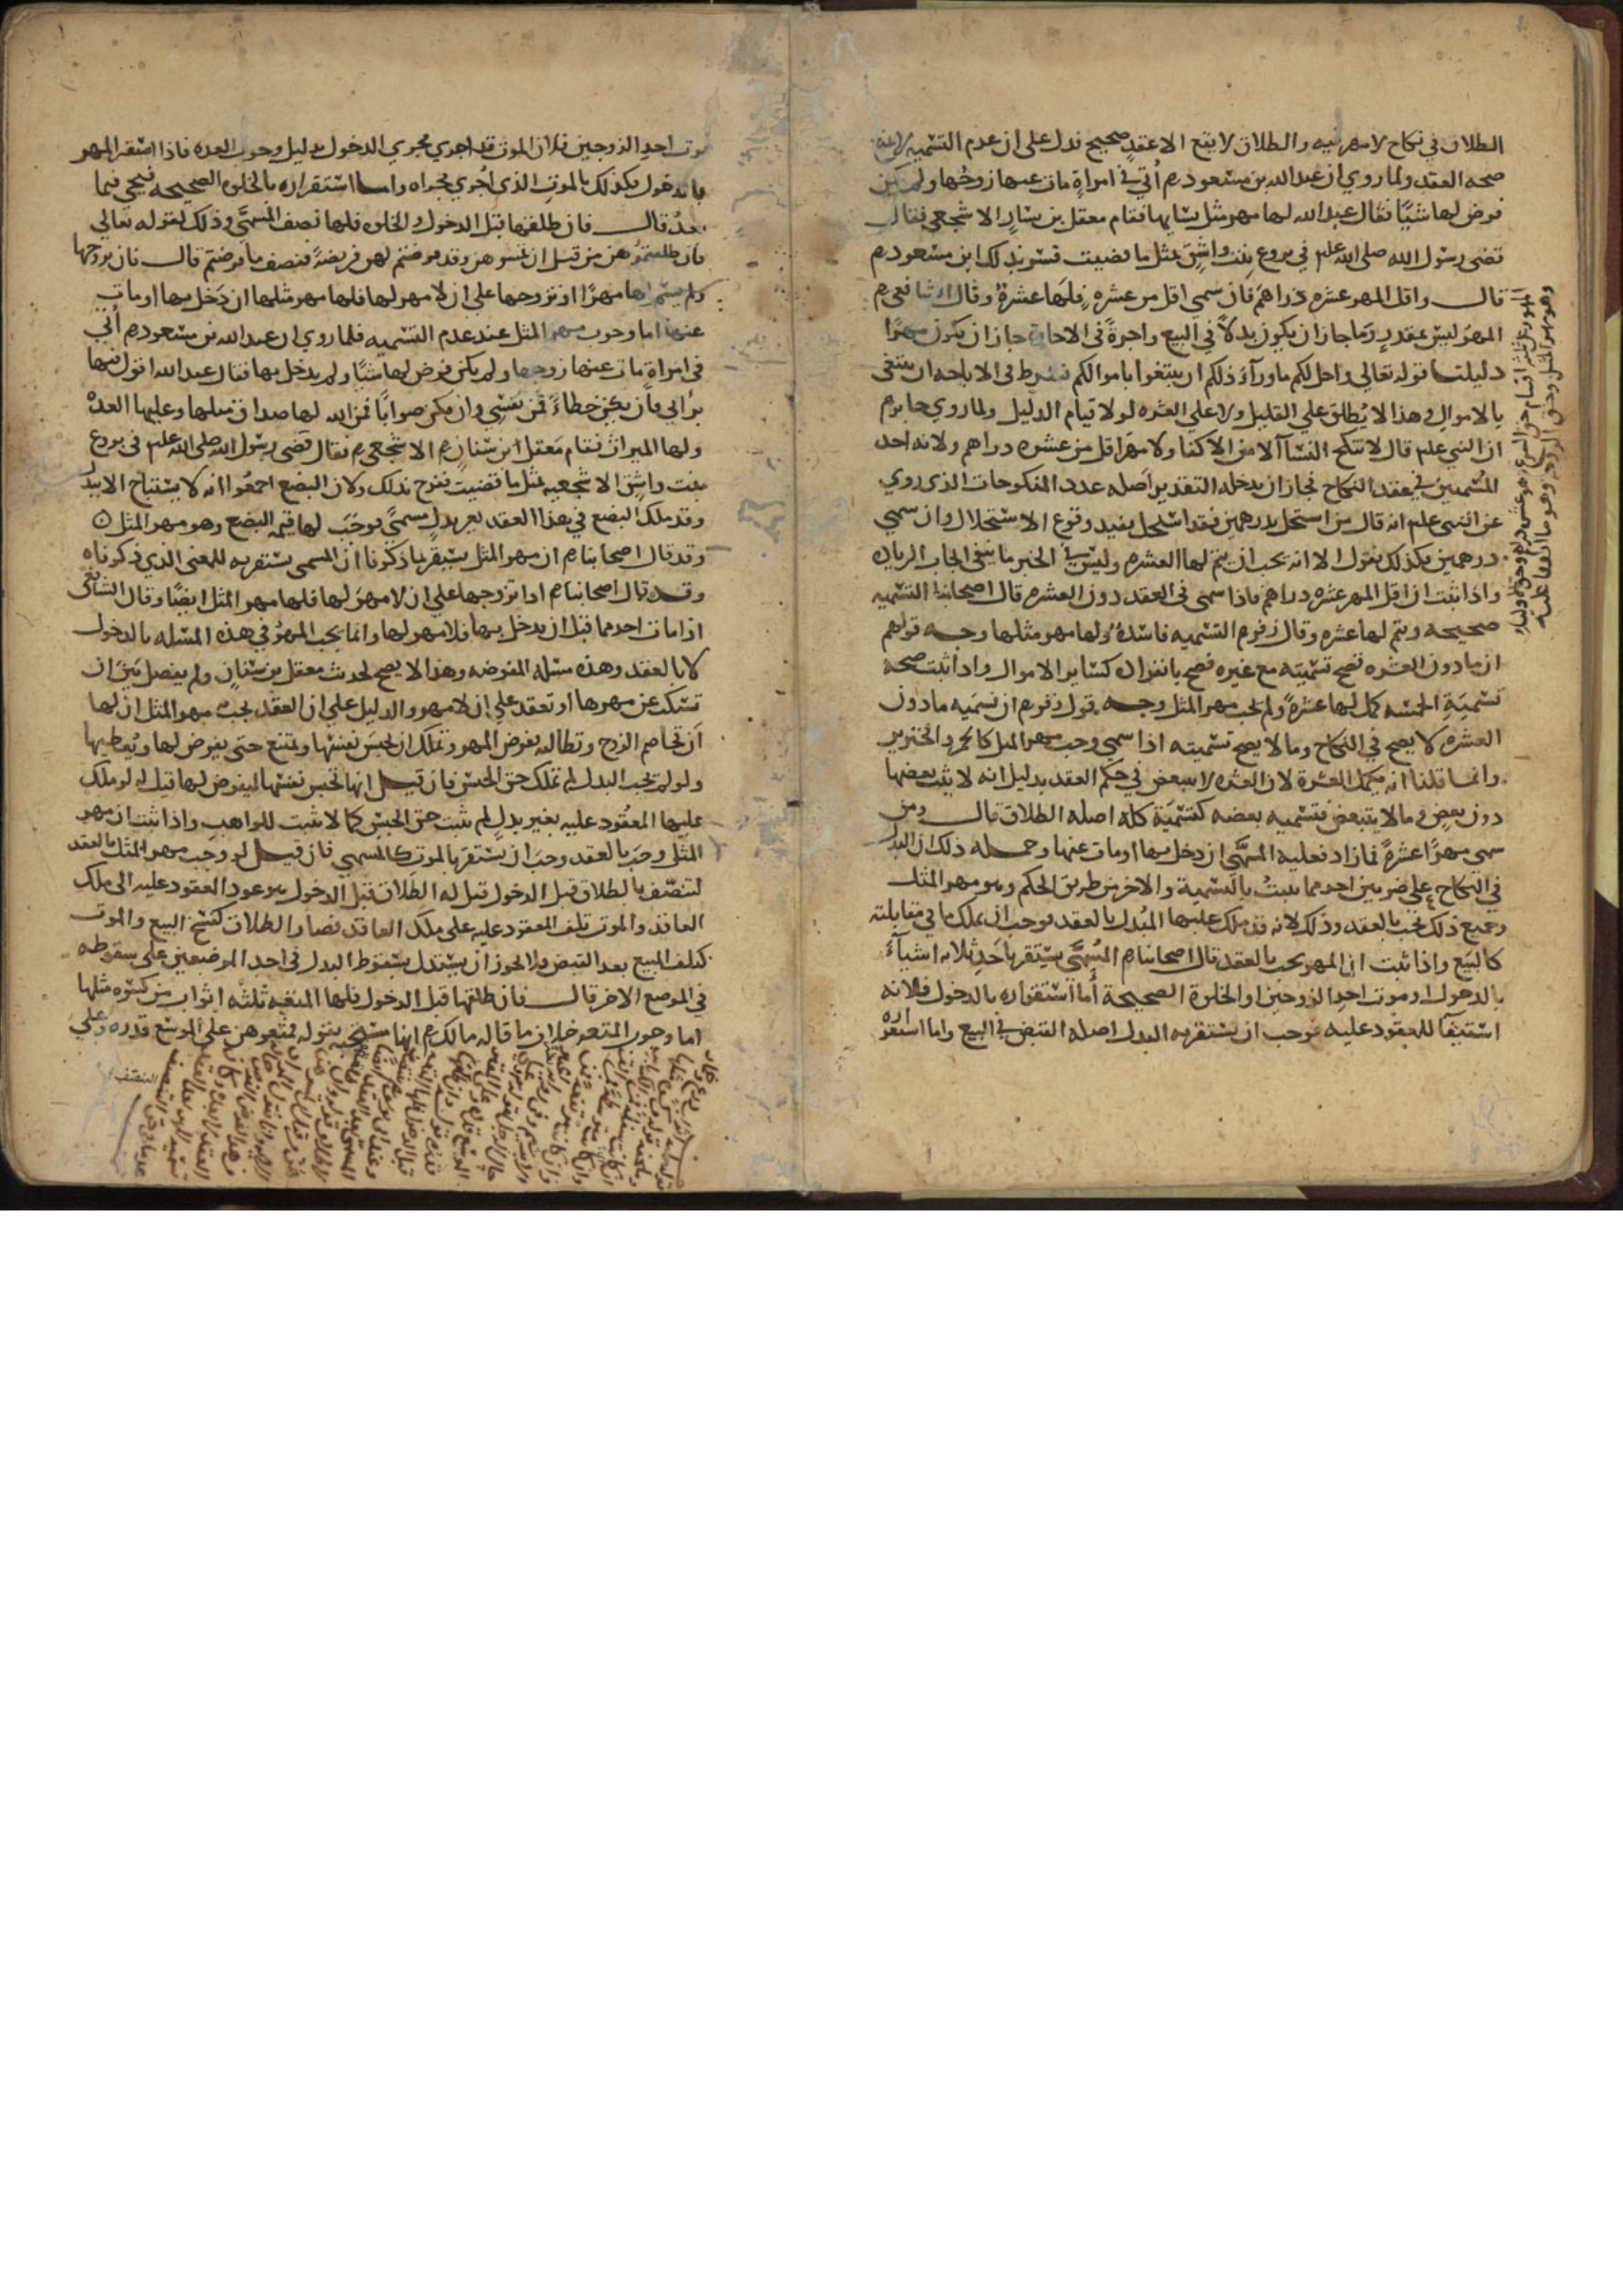 الطلاق في نكاح لا مهر فيه والطلاق لا يقع الا عقد صحيح فدل على ان عدم التسميه لا يمنع
صحه العقد ولما روي ان عبد الله بن مسعود رم أتي في امراةٍ مات عنها زوجُها ولم يكن
فرض لها شيًا فقال عبد الله لها مهر مثل نسايها فقام معقل بن يسارٍ الاشجعي فقال
قضى رسول الله صلى الله علم في بروع بنت واشق بمثل ما قضيت فسر بذلك ابن مسعود رم
قال واقل المهر عشره دراهم فان سمى اقل من عشره فلها عشرة وقال الشافعي رم
المهر ليس بمقدر وما جاز ان يكون بدلاً في البيع واجرةً في الاجارة جاز ان يكون مهرًا
دليلنا قوله تعالي واحل لكم ما ورآء ذلكم ان تبتغوا باموالكم فشرط في الاباحه ان يبتغى
بالاموال وهذا لا يُطلق علي القليل ولا على العشره لولا قيام الدليل ولما روي جابر رم
ان النبي علم قال لا تنكح النسآ الا من الاكفا ولا مهر اقل من عشره دراهم ولانه احد
المُسميين في عقد النكاح فجاز ان يدخله التقدير اصله عدد المنكوحات الذي روي
عن النبي علم انه قال من استحل بدرهمين فقد استحل يفيد وقوع الاستحلال وان سمي
درهمين وكذلك نقول الا انه يجب ان يتم لها العشره وليس في الخبر ما ينفي ايجاب الزياده
واذا ثبت ان اقل المهر عشره دراهم فاذا سمى في العقد دون العشره قال اصحابنا التسميه
صحيحه ويتم لها عشره وقال زفر رم التسميه فاسدة ولها مهر مثلها وجه قولهم
ان ما دون العشره تصح تسميته مع غيره فصح بانفراده كساير الاموال واذا ثبت صحة
تسميةِ الخمسه كمل لها عشرةً ولم يجب مهر المثل وجه قول زفر رم ان تسميه ما دون
العشره لا يصح في النكاح وما لا يصح تسميته اذا سمي وجب مهر المثل كالخمر والخنزير
وانما قلنا انه يكمل العشرة لان العشره لا تتبعض في حكم العقد بدليل انه لا يثبت بعضها
دون بعض وما لا يتبعض فتسميه بعضه كتسمية كله اصله الطلاق قال ومن
سمى مهرًا عشرةً فما زاد فعليه المسمَّى ان دخل بها او مات عنها وجمله ذلك ان البدل
في النكاح على ضربين احدهما يثبتُ بالتسمية والاخر من طريق الحكم وهو مهر المثل
وجميع ذلك يجب بالعقد وذلك لانه قد ملك عليها المُبدل بالعقد فوجب ان يملك ما في مقابلته
كالبيع واذا ثبت ان المهر يجب بالعقد قال اصحابنا رم المُسمَّى يستقر باحَدِ ثلاثه اشيآءَ
بالدخول او موت احدِ الزوجين او الخلوة الصحيحة أما استقراره بالدخول فلانه
استيفآ للمعقود عليه فوجب ان يستقر به البدل اصله القبض في البيع واما استقراره
موت احدِ الزوجين فلان الموت قد اجري مجري الدخول بدليل وجوب العده فاذا استقر المهر
بالدخول فكذلك بالموتِ الذي اُجري مجراه واما استقراره بالخلوه الصحيحه فيجي فيما
بعدُ قال فان طلقها قبل الدخول والخلوه فلها نصف المسمَّى وذلك لقوله تعالي
فان طلقتموُهن من قبل ان تمسوهن وقد فرضتم لهن فريضةً فنصف ما فرضتم قال فان تزوجها
ولم يسم لها مهرًا او تزوجها على ان لا مهر لها فلها مهر مثلها ان دَخل بها او مات
عنها اما وجوب مهر المثل عند عدم التسميه فلما روي ان عبد الله بن مسعود رم أُتي
في امراةٍ مات عنها زوجها ولم يكن فرض لها شيًا ولم يدخل بها فقال عبد الله اقول فيها
برأيي فان يكن خطاءً فمن نفسي وان يكن صوابًا فمن الله لها صداق مثلها وعليها العدهُ
ولها الميراث فقام مَعقل ابن سِنان رم الاشجعي رم فقال قضى رسول الله صلى الله علم في بروع
بنت واشق الاشجعيه بمثل ما قضيت ففرح بذلك ولان البضع اجمعُوا انه لا يستباح الا ببدل
وقد ملك البضع في هذا العقد بغير بدلٍ مسمىً فوجَب لها قيمه البضع وهو مهر المثل
وقد قال اصحابنا رم ان مهر المثل يستقر بما ذكرنا ان المسمى يستقر به للمعنى الذي ذكرناه
وقد قال اصحابنا رم اذا تزوجها علي ان لا مهرَ لها فلها مهر المثل ايضًا وقال الشافعي
اذا مات احدهما قبل ان يدخل بها فلا مهر لها وانما يجب المهرُ في هذه المسئله بالدخول
لا بالعقد وهذه مسئله المفوضه وهذا لا يصح لحديث معقل بن سنانٍ ولم يفصل بين ان
تسكت عن مهرها او تعقد على ان لا مهر والدليل علي ان العقد يجب به مهر المثل ان لها
اَن تخاصم الزوج وتطالبه بفرض المهر وتملك ان تحبس نفسها وتمتنع حتى يفرض لها ويُعطيها
ولو لم يجب البدل لم تملك حق الحبس فان قيل انها تحبس نفسها ليفرض لها قيل له لو ملك
عليها المعقُود عليه بغير بدلٍ لم يثبت حق الحبس كما لا يثبت للواهب واذا ثبت ان مهر
المثل وجَبَ بالعقد وجب ان يستقر بالموت كالمسمي فان قيل لو وجَب مهر المثل بالعقد
لتنصّف بالطلاق قبل الدخول قيل له الطلاق قبل الدخول هو عود المعقود عليه الى ملك
العاقد والموت تلف المعقود عليه على ملك العاقد فصار الطلاق كفسخ البيع والموت
كتلف المبيع بعد القبض فلا يجوز ان يستدل بسقوط البدل في احد الموضعين على سقوطه
في الموضع الاخر قال فان طلقها قبل الدخول فلها المتعه ثلثه اثواب من كسوه مثلها
اما وجوب المتعه خلاف ما قاله مالك رم انها مستحبه بقوله فمتعوهن على الموسع قدره وعلى